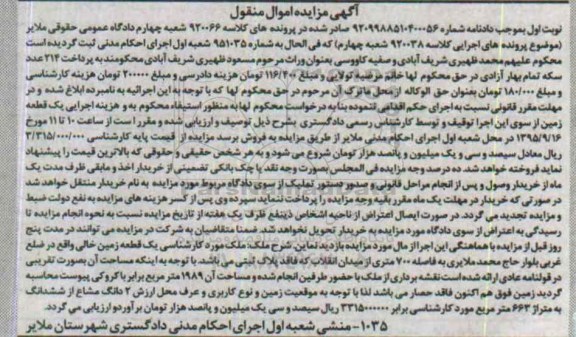 آگهی مزایده اموال منقول
نوبت اول بموجب دادنامه شماره ۹۲۰۹۹۸۸۵۱۰۴۰۰۰۵۶ صادر شده در پرونده های کلاسه ۹۲۰۰۶۶ شعبه چهارم دادگاه عمومی حقوقی ملایر
(موضوع پرونده های اجرایی کلاسه ۹۲۰۰۳۸ شعبه چهارم) که فی الحال به شماره ۹۵۱۰۳۵ شعبه اول اجرای احکام مدنی ثبت گردیده است
محکوم علیهم محمد ظهیری شریف آبادی و صفیه کاووسی بعنوان وراث مرحوم مسعود ظهیری شریف آبادی محکومند به پرداخت ۲۱۴ عدد
سکه تمام بهار آزادی در حق محکوم لها خانم مرضیه کولایی و مبلغ ۱۱۶/۴۰۰ تومان هزینه دادرسی و مبلغ ۲۰۰۰۰۰ تومان هزینه کارشناسی
و مبلغ ۱۸۰/۰۰۰ تومان بعنوان حق الوکاله از محل ماترک آن مرحوم در حق محکوم لها که با توجه به این اجرائیه به نامبرده ابلاغ شده و در
مهلت مقرر قانونی نسبت به اجرای حکم اقدامی ننموده بنا به درخواست محکوم لها به منظور استیفاء محکوم به و هزینه اجرایی یک قطعه
زمین از سوی این اجرا توقیف و توسط کارشناس رسمی دادگستری بشرح ذیل توصیف و ارزیابی شده و مقرر است از ساعت ۱۰ تا ۱۱ مورخ
۱۳۹۵/۹/۱۶ در محل شعبه اول اجرای احکام مدنی ملایر از طریق مزایده به فروش برسد مزایده از قیمت پایه کارشناسی ۳/۳۱۵/۰۰۰/۰۰۰
ریال معادل سیصد و سی و یک میلیون و پانصد هزار تومان شروع می شود و به هر شخص حقیقی و حقوقی که بالاترین قیمت را پیشنهاد
نماید فروخته خواهد شد. ده درصد وجه مزایده فی المجلس بصورت وجه نقد یا چک بانکی تضمینی از خریدار اخذ و مابقی ظرف مدت یک
ماه از خریدار وصول و پس از انجام مراحل قانونی و صدور دستور تملیک از سوی دادگاه مربوط مورد مزایده به نام خریدار منتقل خواهد شد
در صورتی که خریدار در مهلت یک ماه مقرر بقیه وجه مزایده را پرداخت ننماید سپرده وی پس از کسر هزینه های مزایده به نفع دولت ضبط
و مزایده تجدید می گردد. در صورت ایصال اعتراض از ناحیه اشخاص ذینفع ظرف یک هفته از تاریخ مزایده نسبت به نحوه انجام مزایده تا
رسیدگی به اعتراض از سوی دادگاه مورد مزایده به خریدار تحویل نخواهد شد. ضمنا متقاضیان به شرکت در مزایده می توانند در مدت پنج
روز قبل از مزایده با هماهنگی این اجرا از مال مورد مزایده بازدید نمایند. شرح ملک: ملک مورد کارشناسی یک قطعه زمین خالی واقع در ضلع
غربی بلوار حاج محمد ملایری به فاصله ۷۰۰ متری از میدان انقلاب که فاقد پلاک ثبتی می باشد. با توجه به اینکه مساحت آن بصورت تقریبی
در قولنامه عادی ارائه شده است نقشه برداری از ملک با حضور طرفین انجام شده و مساحت آن ۱۹۸۹ متر مربع برابر با کروکی پیوست محاسبه
گردید زمین فوق هم اکنون فاقد حصار می باشد لذا با توجه به موقعیت زمین و نوع کاربری و عرف محل ارزش ۲ دانگ مشاع از ششدانگ
به متراژ ۶۶۳ متر مربع مورد کارشناسی برابر ۳۳۱۵۰۰۰۰۰۰ ریال سیصد و سی یک میلیون و پانصد هزار تومان برآورد و ارزیابی می گردد.
۱۰۳۵- منشی شعبه اول اجرای احکام مدنی دادگستری شهرستان ملایر